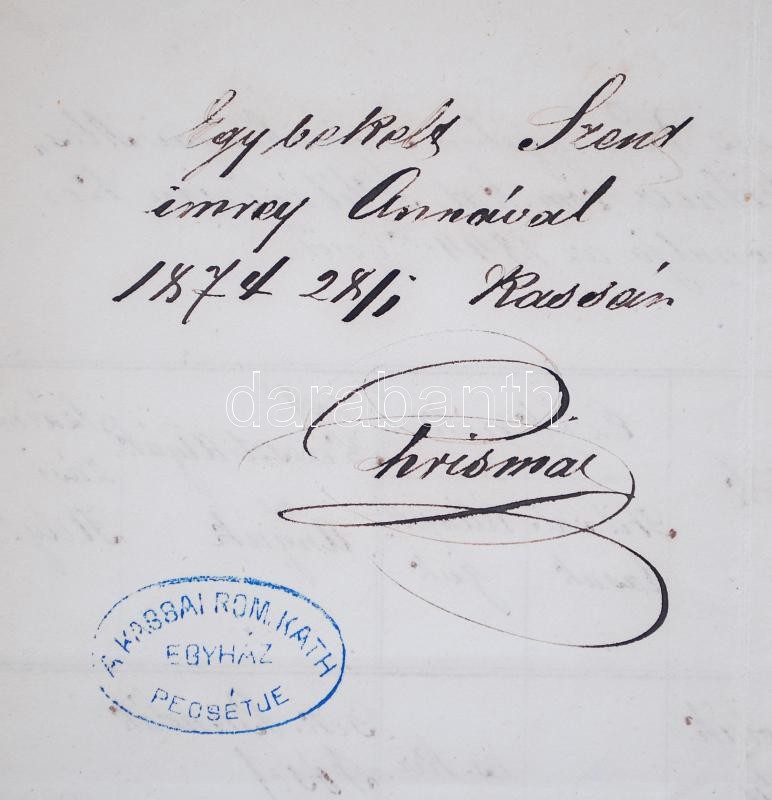 Egybekelt Szent
imrey Annával
1874 28/i Kassán
darabanth
Chrismár
A KASSAI ROM. KATH
EGYHÁZ
PECSÉTJE